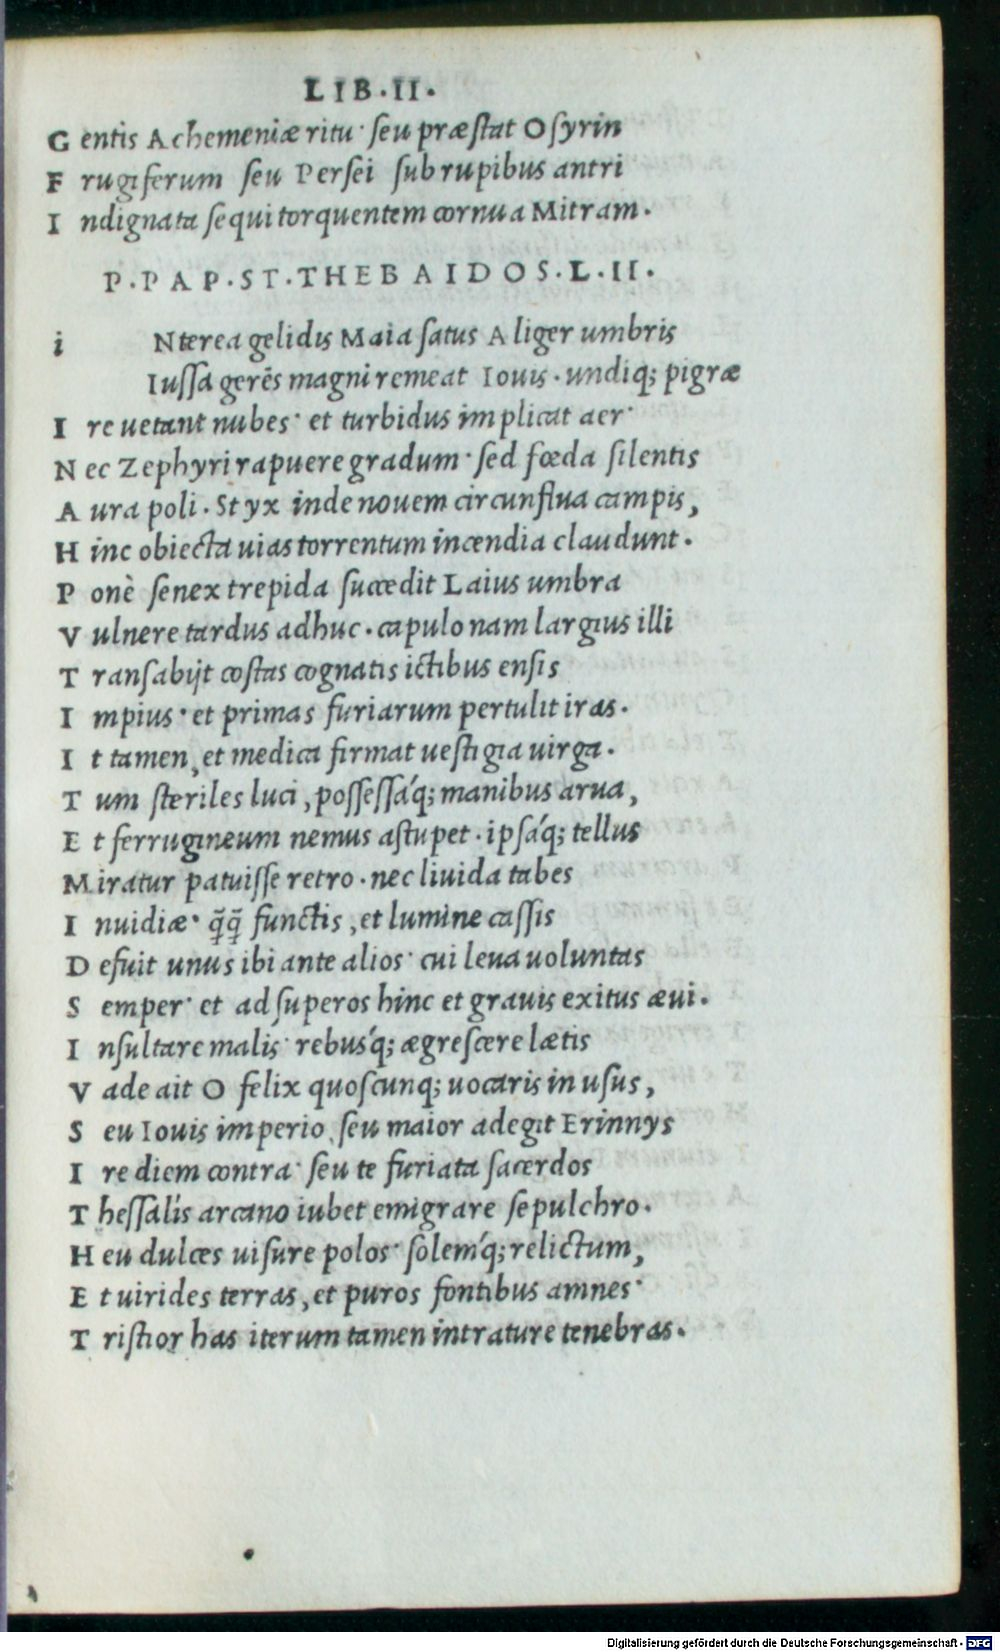 LIB·II·
Gentis Achemeniæ ritu· seu præstat Osyrin
Frugiferum seu Persei sub rupibus antri
Indignata sequi torquentem cornua Mitram.
P·PAP·ST·THEBAIDOS·L·II·
iNterea gelidis Maia satus Aliger umbris
Iussa gerēs magni remeat Iouis· undiq; pigræ
Ire uetant nubes· et turbidus implicat aer·
Nec Zephyri rapuere gradum· sed fœda silentis
Aura poli. Styx inde nouem circunflua campis,
Hinc obiecta uias torrentum incendia claudunt.
Ponè senex trepida succedit Laius umbra
Vulnere tardus adhuc. capulo nam largius illi
Transabijt costas cognatis ictibus ensis
Impius· et primas furiarum pertulit iras.
It tamen, et medica firmat uestigia uirga.
Tum steriles luci, possessáq; manibus arua,
Et ferrugineum nemus astupet. ipsáq; tellus
Miratur patuisse retro. nec liuida tabes
Inuidiæ· q̄q̄ functis, et lumine cassis
Defuit unus ibi ante alios· cui leua uoluntas
Semper· et ad superos hinc et grauis exitus æui.
Insultare malis· rebusq́; ægrescere lætis
Vade ait O felix quoscunq; uocaris in usus,
Seu Iouis imperio, seu maior adegit Erinnys
Ire diem contra· seu te furiata sacerdos
Thessális arcano iubet emigrare sepulchro.
Heu dulces uisure polos· solemq́; relictum,
Et uirides terras, et puros fontibus amnes·
Tristior has iterum tamen intrature tenebras.
Digitalisierung gefördert durch die Deutsche Forschungsgemeinschaft - DFG